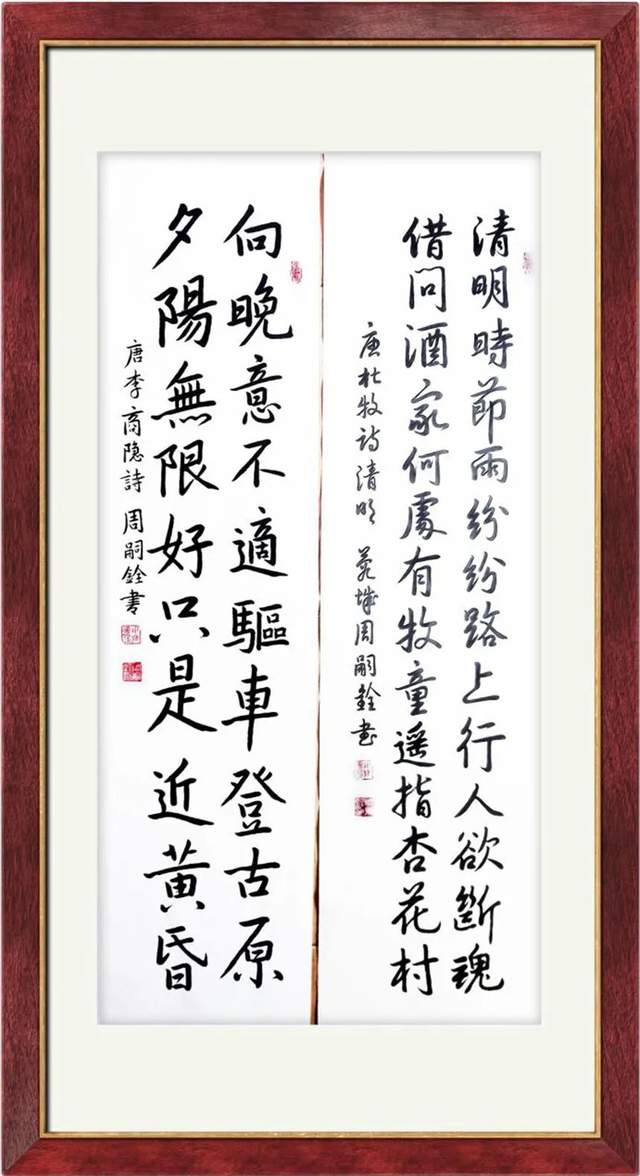 清明時節雨紛紛路上行人欲斷魂
借問酒家何處有牧童遥指杏花村
唐杜牧詩清明 城周嗣銓書
向晚意不適驅車登古原
夕陽無限好只是近黄昏
唐李商隐詩 周嗣銓書